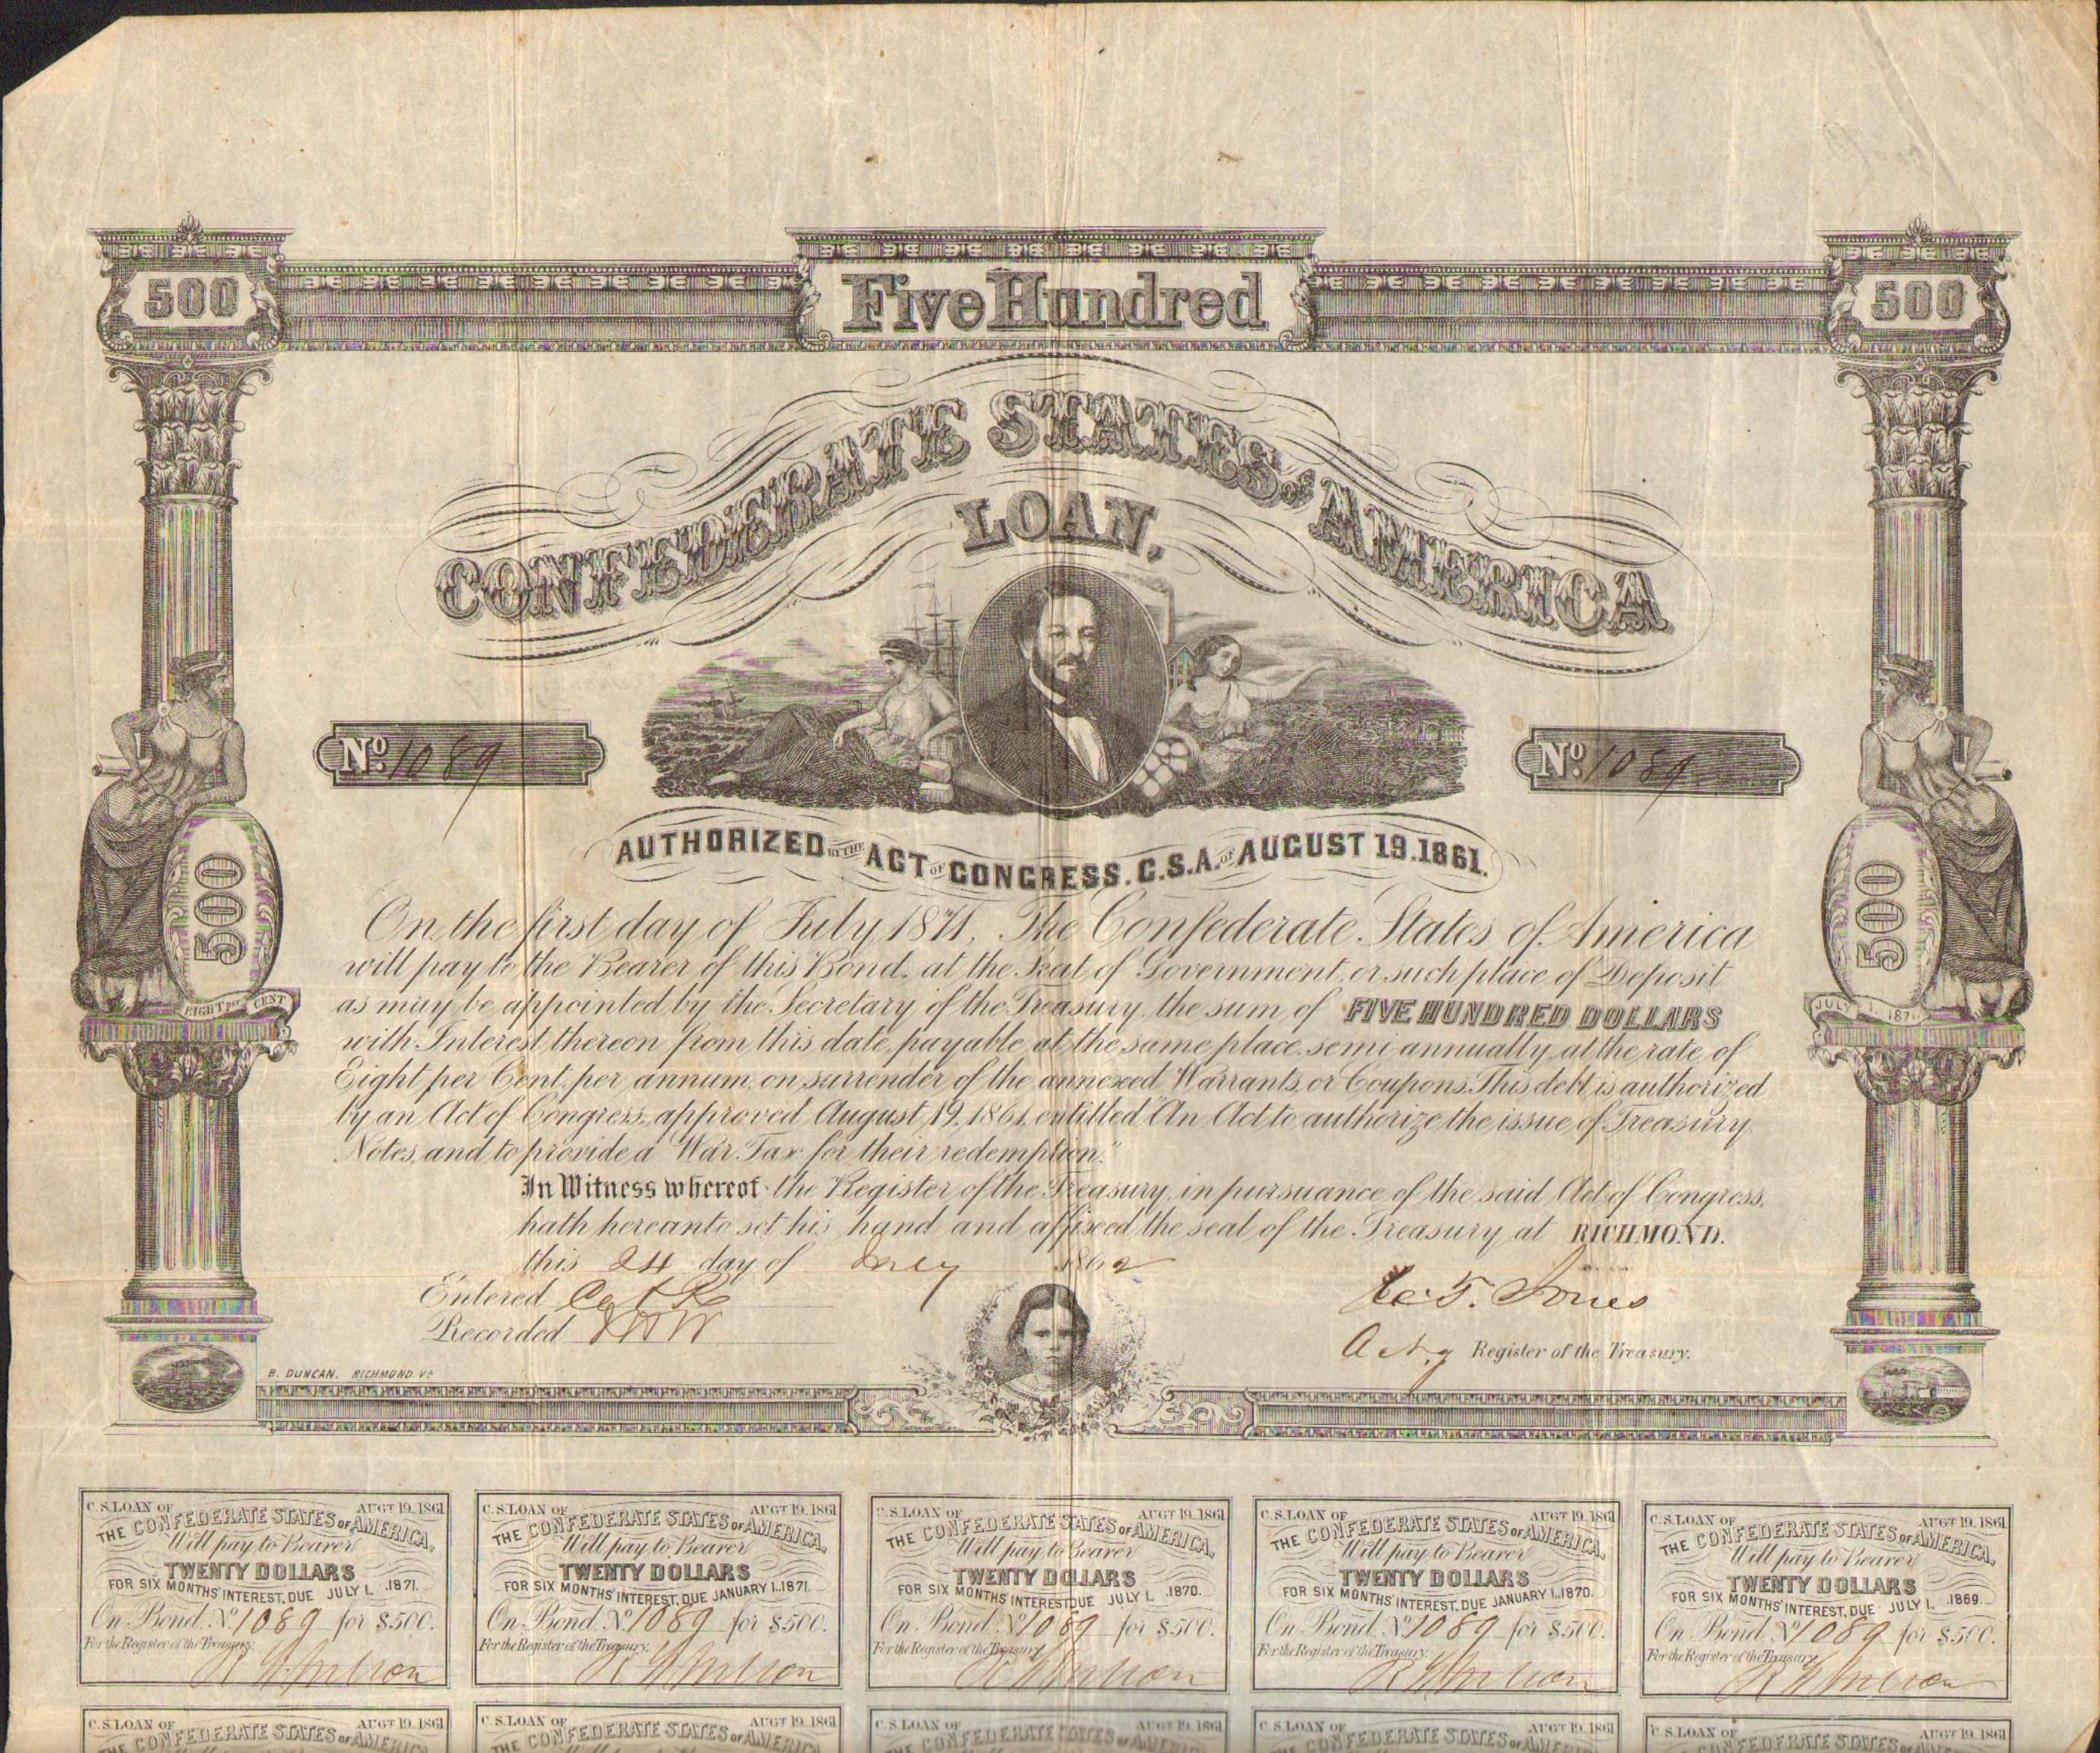 500
Five Hundred
500
CONFEDERATE STATES OF AMERICA
LOAN,
No. 1089
No. 1089
AUTHORIZED BY THE ACT OF CONGRESS. C.S.A. OF AUGUST 19.1861.
On the first day of July 1871, The Confederate States of America
will pay to the Bearer of this Bond, at the Seat of Government, or such place of Deposit
as may be appointed by the Secretary of the Treasury, the sum of FIVE HUNDRED DOLLARS
with Interest thereon from this date, payable at the same place semi annually, at the rate of
Eight per Cent. per annum, on surrender of the annexed Warrants, or Coupons. This debt is authorized
by an Act of Congress, approved August 19, 1861, entitled "An Act to authorize the issue of Treasury
Notes, and to provide a War Tax for their redemption."
In Witness whereof the Register of the Treasury, in pursuance of the said Act of Congress,
hath hereunto set his hand and affixed the seal of the Treasury at RICHMOND.
this 24 day of 1862
Entered
Recorded
Jones
Actg Register of the Treasury.
500
EIGHT PER CENT
500
JULY 1. 1871
B. DUNCAN. RICHMOND. VA
C.S. LOAN OF AUGT 19. 1861
THE CONFEDERATE STATES OF AMERICA,
Will pay to Bearer
TWENTY DOLLARS
FOR SIX MONTHS' INTEREST, DUE JULY 1. 1871.
On Bond No. 1089 for $500.
For the Register of the Treasury.
C.S. LOAN OF AUGT 19. 1861
THE CONFEDERATE STATES OF AMERICA,
Will pay to Bearer
TWENTY DOLLARS
FOR SIX MONTHS' INTEREST, DUE JANUARY 1. 1871.
On Bond No. 1089 for $500.
For the Register of the Treasury.
C.S. LOAN OF AUGT 19. 1861
THE CONFEDERATE STATES OF AMERICA,
Will pay to Bearer
TWENTY DOLLARS
FOR SIX MONTHS' INTEREST DUE JULY 1. 1870.
On Bond No. 1089 for $500.
For the Register of the Treasury
C.S. LOAN OF AUGT 19. 1861
THE CONFEDERATE STATES OF AMERICA,
Will pay to Bearer
TWENTY DOLLARS
FOR SIX MONTHS' INTEREST, DUE JANUARY 1. 1870.
On Bond No. 1089 for $500.
For the Register of the Treasury.
C.S. LOAN OF AUGT 19. 1861
THE CONFEDERATE STATES OF AMERICA,
Will pay to Bearer
TWENTY DOLLARS
FOR SIX MONTHS' INTEREST, DUE JULY 1. 1869.
On Bond No. 1089 for $500.
For the Register of the Treasury
C.S. LOAN OF AUGT 19. 1861
THE CONFEDERATE STATES OF AMERICA
C.S. LOAN OF AUGT 19. 1861
THE CONFEDERATE STATES OF AMERICA
C.S. LOAN OF AUGT 19. 1861
THE CONFEDERATE STATES OF AMERICA
C.S. LOAN OF AUGT 19. 1861
THE CONFEDERATE STATES OF AMERICA
C.S. LOAN OF AUGT 19. 1861
CONFEDERATE STATES OF AMERICA